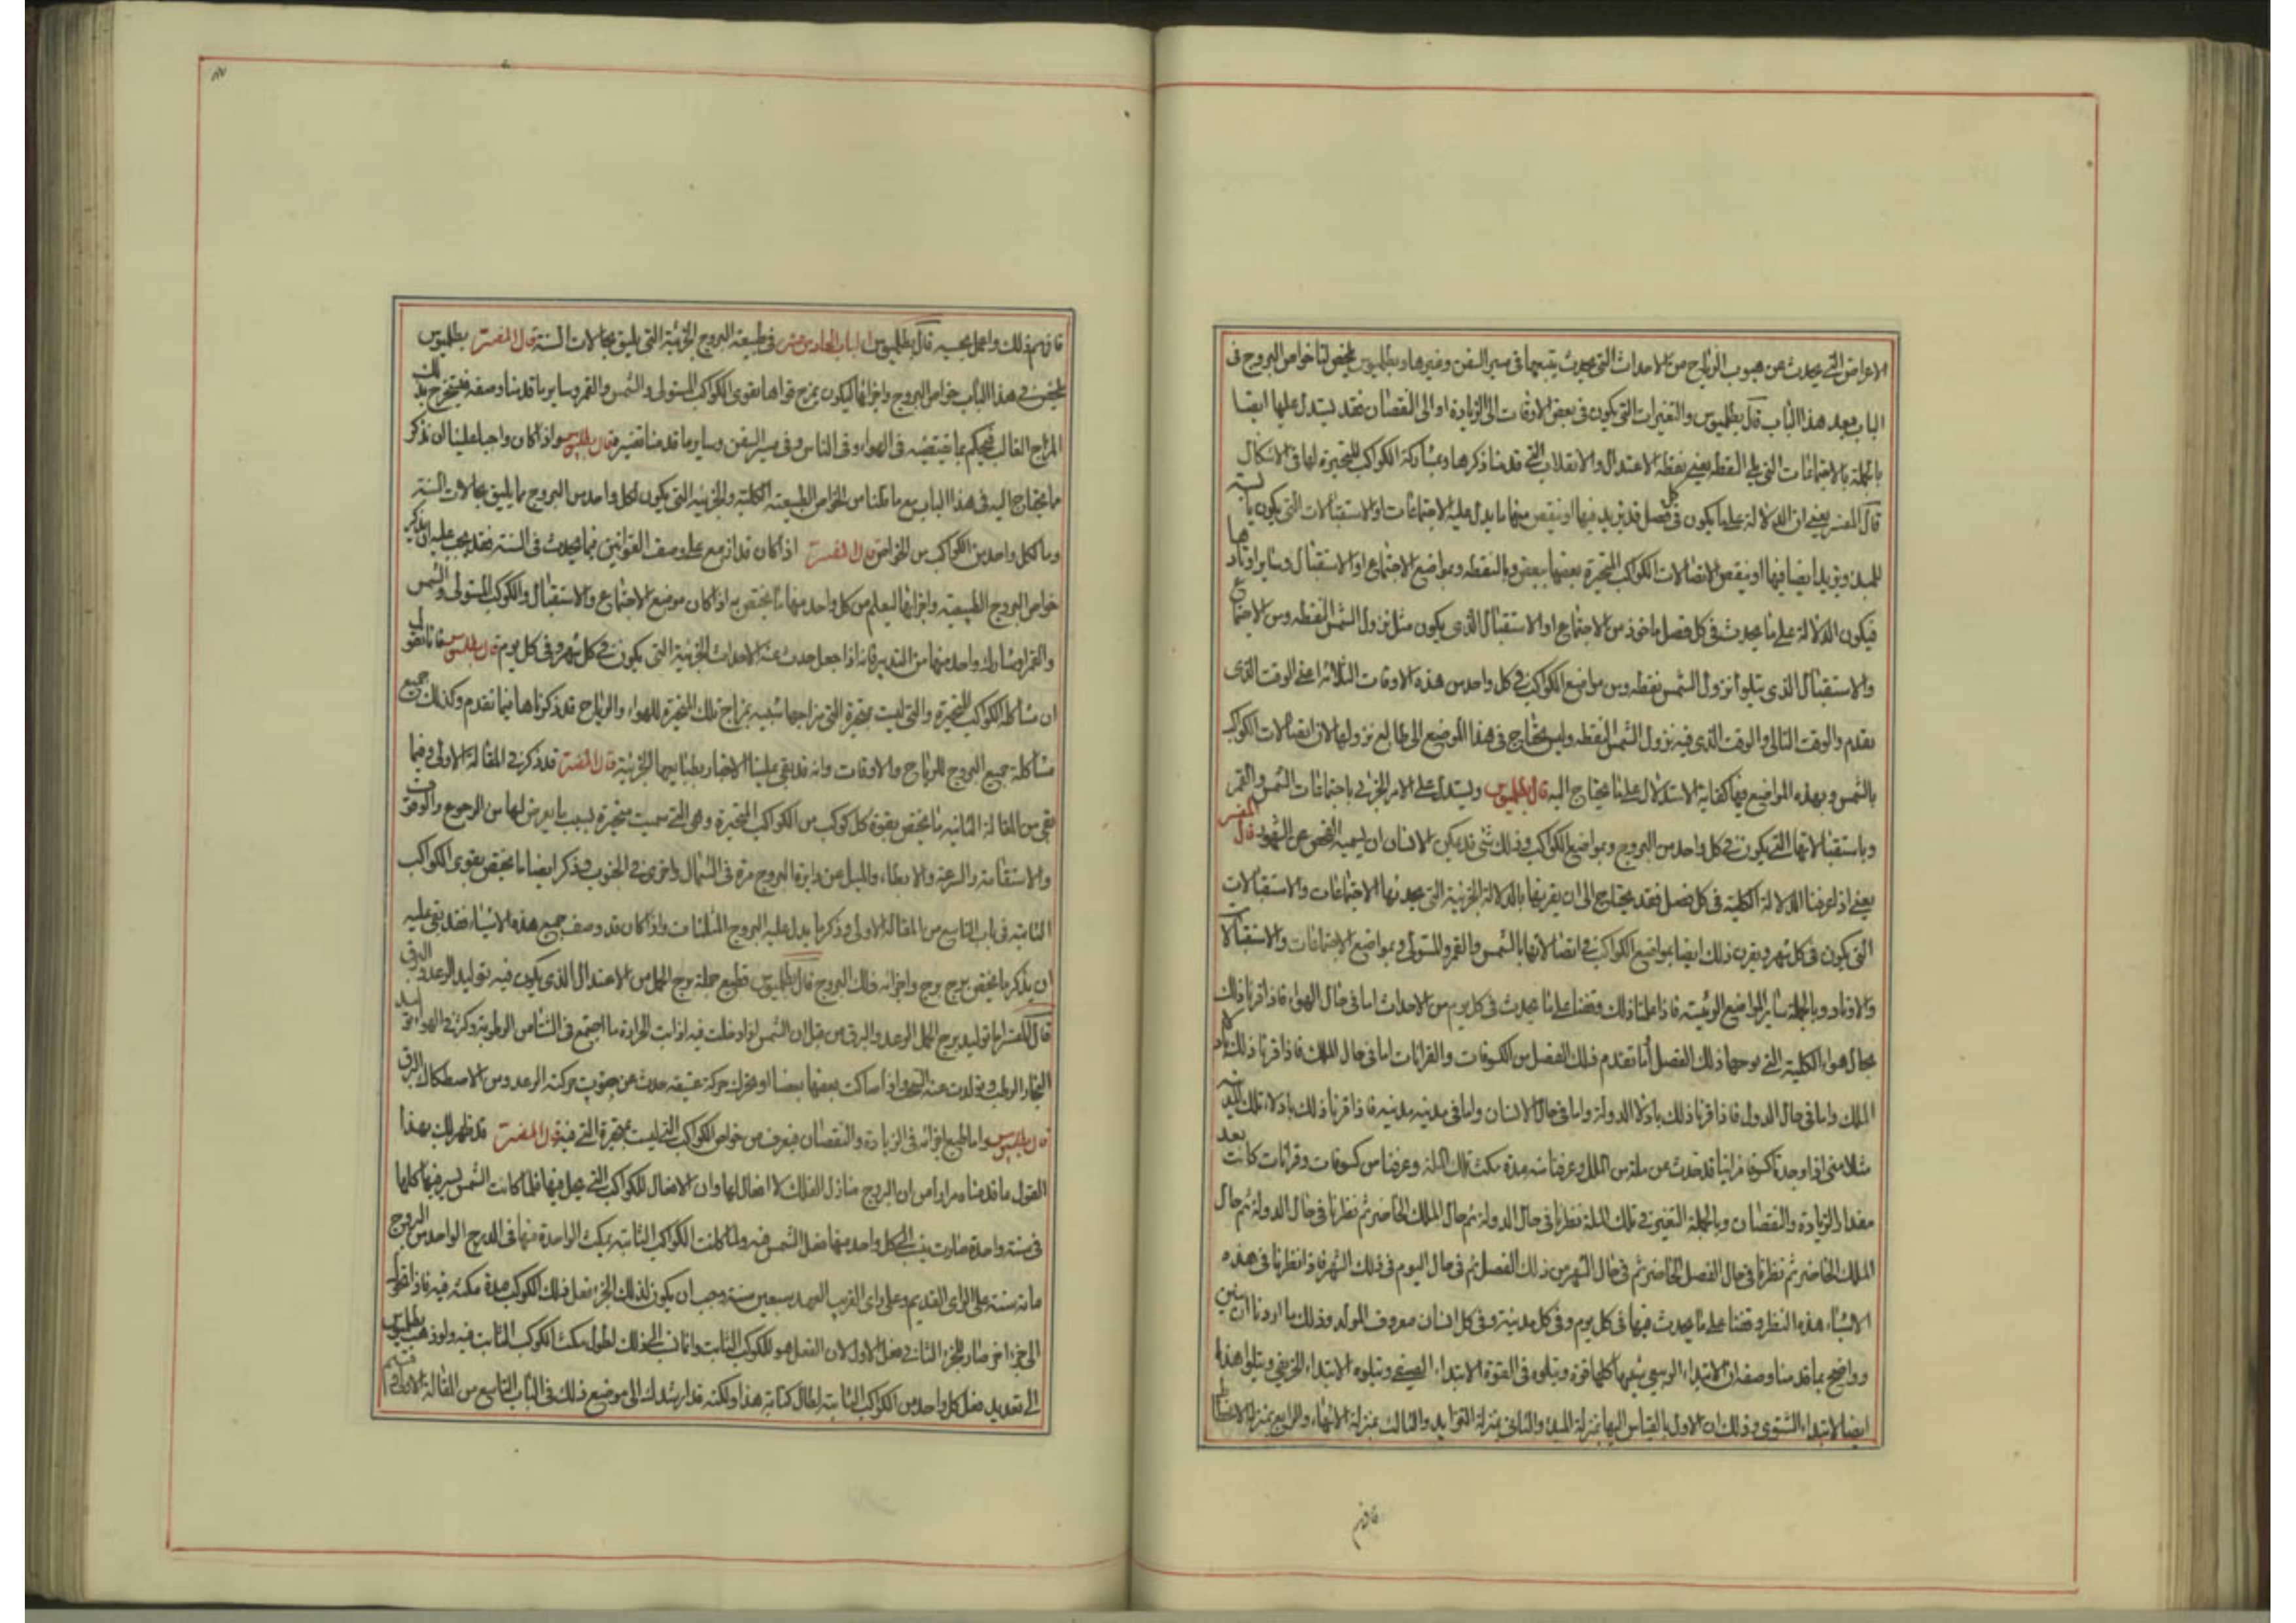 الاعراض التي يحدث عن هبوب الرياح من الاحداث التي يحدث بتبعها في سير السفن وغيرها وبطلميوس يلخص لنا خواص البروج في
الباب بعد هذا الباب قال بطلميوس والتغيرات التي يكون في بعض الاوقات الى الزيادة او الى النقصان فقد يستدل عليها ايضا
بالجملة بالاجتماعات التي يلي النقطه يعني نقطه الاعتدال والانقلاب التي قدمنا ذكرها وبمشاركة الكواكب المتحيرة لها في الاشكال
قال المفسر يعني ان الدلالة على ما يكون في كل فصل قد يزيد فيها او ينقص منها ما يدل عليه الاجتماعات او الاستقبالات التي يكون
للمبدء ويزيد ايضا فيها او ينقص الاتصالات الكواكب المتحيرة بعضها ببعض وبالنقطه وبمواضع الاجتماع او الاستقبال وسائر اوتادها
فيكون الدلالة على ما يحدث في كل فصل ماخوذ من الاجتماع او الاستقبال الذي يكون مثل نزول الشمس النقطه ومن الاجتماع
والاستقبال الذي يتلوا نزول الشمس نقطه ومن مواضع الكواكب في كل واحد من هذه الاوقات الثلاثه اعني الوقت الذي
تقدم والوقت التالي والوقت الذي فيه نزول الشمس النقطه وليس يحتاج في هذا الموضع الى طالع نزولها لان اتصالات الكواكب
بالشمس وبهذه المواضع فيها كفاية الاستدلال على ما يحتاج اليه قال بطلميوس ويستدل على الامر الجزئي باجتماعات الشمس والقمر
وباستقبالاتها التي يكون في كل واحد من البروج وبمواضع الكواكب وذلك شي قد يمكن الانسان ان يسميه الفحص عن الشهور قال المفسر
يعني اذا عرفنا الدلالة الكلية في كل فصل فقد يحتاج الى ان يقرنها بالدلالة الجزئية التي يحدثها الاجتماعات والاستقبالات
التي يكون في كل شهر ويقرن ذلك ايضا بمواضع الكواكب في اتصالاتها بالشمس والقمر والمستولي وبمواضع الاجتماعات والاستقبالات
والاوتاد وبالجملة سائر المواضع الرئيسة فاذا علمنا ذلك وقفنا على ما يحدث في كل يوم من الاحداث اما في حال الهواء فاذا قرنا ذلك
بحال هواء الكلية التي يوجبها ذلك الفصل انما تقدم ذلك الفصل من الكسوفات والقرانات اما في حال الملك فاذا قرنا ذلك
الملك واما في حال الدول فاذا قرنا ذلك بادلاء الدولة واما في حال الانسان واما في مدينه مدينه فاذا قرنا ذلك بادلاء تلك المدينه
مثلا متى اذا وجدنا كسوفا او قرانا قد حدث عن ملة من الملل وعرفنا مدة مكث تلك الملة وعرفنا من كسوفات وقرانات كانت بعد
مقدار الزيادة والنقصان وبالجملة التغير في تلك الملة نظرنا في حال الدولة ثم حال الملك الحاضر ثم نظرنا في حال الدولة ثم حال
الملك الحاضر ثم نظرنا في حال الفصل الحاضر ثم في حال الشهر من ذلك الفصل ثم في حال اليوم في ذلك الشهر فاذا نظرنا في هذه
الاشياء هذه النظر وقفنا على ما يحدث فيها في كل يوم وفي كل مدينة وفي كل انسان معروف المولد وذلك ما اردنا ان نبين
وواضح بما قدمنا وصفه ان الابتداء الربيعي كلها قوة ويتلوه في القوة الابتداء الصيفي ويتلوه الابتداء الخريفي ويتلوا هذا
ايضا الابتداء الشتوي وذلك ان الاول بالقياس اليها بمنزلة المبدء والثاني بمنزلة التزايد والثالث بمنزلة الانتهاء والرابع بمنزلة الانحطاط
فافهم
فافهم ذلك واعمل بحسبه قال بطلميوس الباب الحادي عشر في طبيعة البروج الجزئية التي يليق بحالات السنة قال المفسر بطلميوس
يلخص في هذا الباب خواص البروج واجزائها ليكون يمزج قواها بقوى الكواكب المستولى والشمس والقمر وساير ما قدمنا وصفه فيستخرج بذلك
المزاج الغالب فيحكم بما يقتضيه في الهواء وفي الناس وفي سير السفن وساير ما قدمنا تفسيره قال بطلميوس واذا كان واجبا علينا ان نذكر
ما يحتاج اليه في هذا الباب مع ما قلنا من الخواص الطبيعية الكلية والجزئية التي يكون لكل واحد من البروج ما يليق بحالات السنة
وما لكل واحد من الكواكب من الخواص قال المفسر اذا كان قد ازمع على وصف القوانين فيما يحدث في السنة فقد يجب عليه ان يذكر
خواص البروج الطبيعية واجزائها ليعلم من كل واحد منها ما يختص به اذا كان موضع الاجتماع والاستقبال والكوكب المستولى والشمس
والقمر وصار كل واحد منهما من التدبير فانه اذا جعل حدث عنه الاحداث الجزئية التي يكون في كل شهر وفي كل يوم قال بطلميوس فانا نقول
ان مشاكله الكواكب المتحيرة والتي ليست بمتحيرة التي مزاجها شبيه بمزاج تلك المتحيرة للهواء والرياح قد ذكرناها فيما تقدم وكذلك جميع
مشاكلة جميع البروج للرياح والاوقات وانه قد بقي علينا الاخبار بطبائعها الجزئية قال المفسر قد ذكر في المقالة الاولى وفيما
بقي من المقالة الثانيه ما يختص بقوة كل كوكب من الكواكب المتحيرة وهي التي سميت متحيرة بسبب ما يعرض لها من الرجوع والوقوف
والاستقامة والسرعة والابطاء والميل عن دايرة البروج مرة في الشمال واخرى في الجنوب وذكر ايضا ما يختص بقوى الكواكب
الثابته في باب التاسع من المقالة الاولى وذكر ما يدل عليه البروج المثلثات واذا كان قد وصف جميع هذه الاشياء فقد بقي عليه
ان يذكر ما يختص برج برج واجزائه فلك البروج قال بطلميوس فطبع جملة برج الحمل من الاعتدال الذي يكون فيه توليد الرعد والبرق
قال المفسر اما توليد برج الحمل الرعد والبرق من قبل ان الشمس اذا دخلت فيه اذابت الحرارة ما اجتمع في الشتا من الرطوبة وكثر في الهواء
البخار الرطب وتولدت عنه السحب واذا صاكت بعضها بعضا او تحرك حركة عنيفه حدث عن صوت حركته الرعد ومن الاصطكاك البرق
قال بطلميوس واما طبع اجزائه في الزيادة والنقصان فيعرف من خواص الكواكب التي ليست بمتحيرة التي فيه قال المفسر قد ظهر لك بهذا
القول ما قدمناه مرارا من ان البروج منازل الفلك لا افعال لها وان الافعال للكواكب التي يحل فيها فلما كانت الشمس يسير فيها كلها
في سنة واحدة صارت ينسب الى كل واحد منها فعل الشمس فيه ولما كانت الكواكب الثابته يمكث الواحدة منها في الدرج الواحد من البروج
مائة سنة على الراي القديم وعلى راي القريب العهد سبعين سنة وجب ان يكون لذلك الجزء فعل ذلك الكوكب مدة مكثه فيه فاذا انتقل
الى جزء اخر صار للجزء الثاني فعل الاول لان الفعل هو للكوكب الثابت وانما نسب الى ذلك لطول مكث الكوكب الثابت فيه ولو ذهب بطلميوس
الى تعديد فعل كل واحد من الكواكب الثابتة لطال كتابه هذا ولكنه قد ارشدك الى موضع ذلك في الباب التاسع من المقالة الاولى